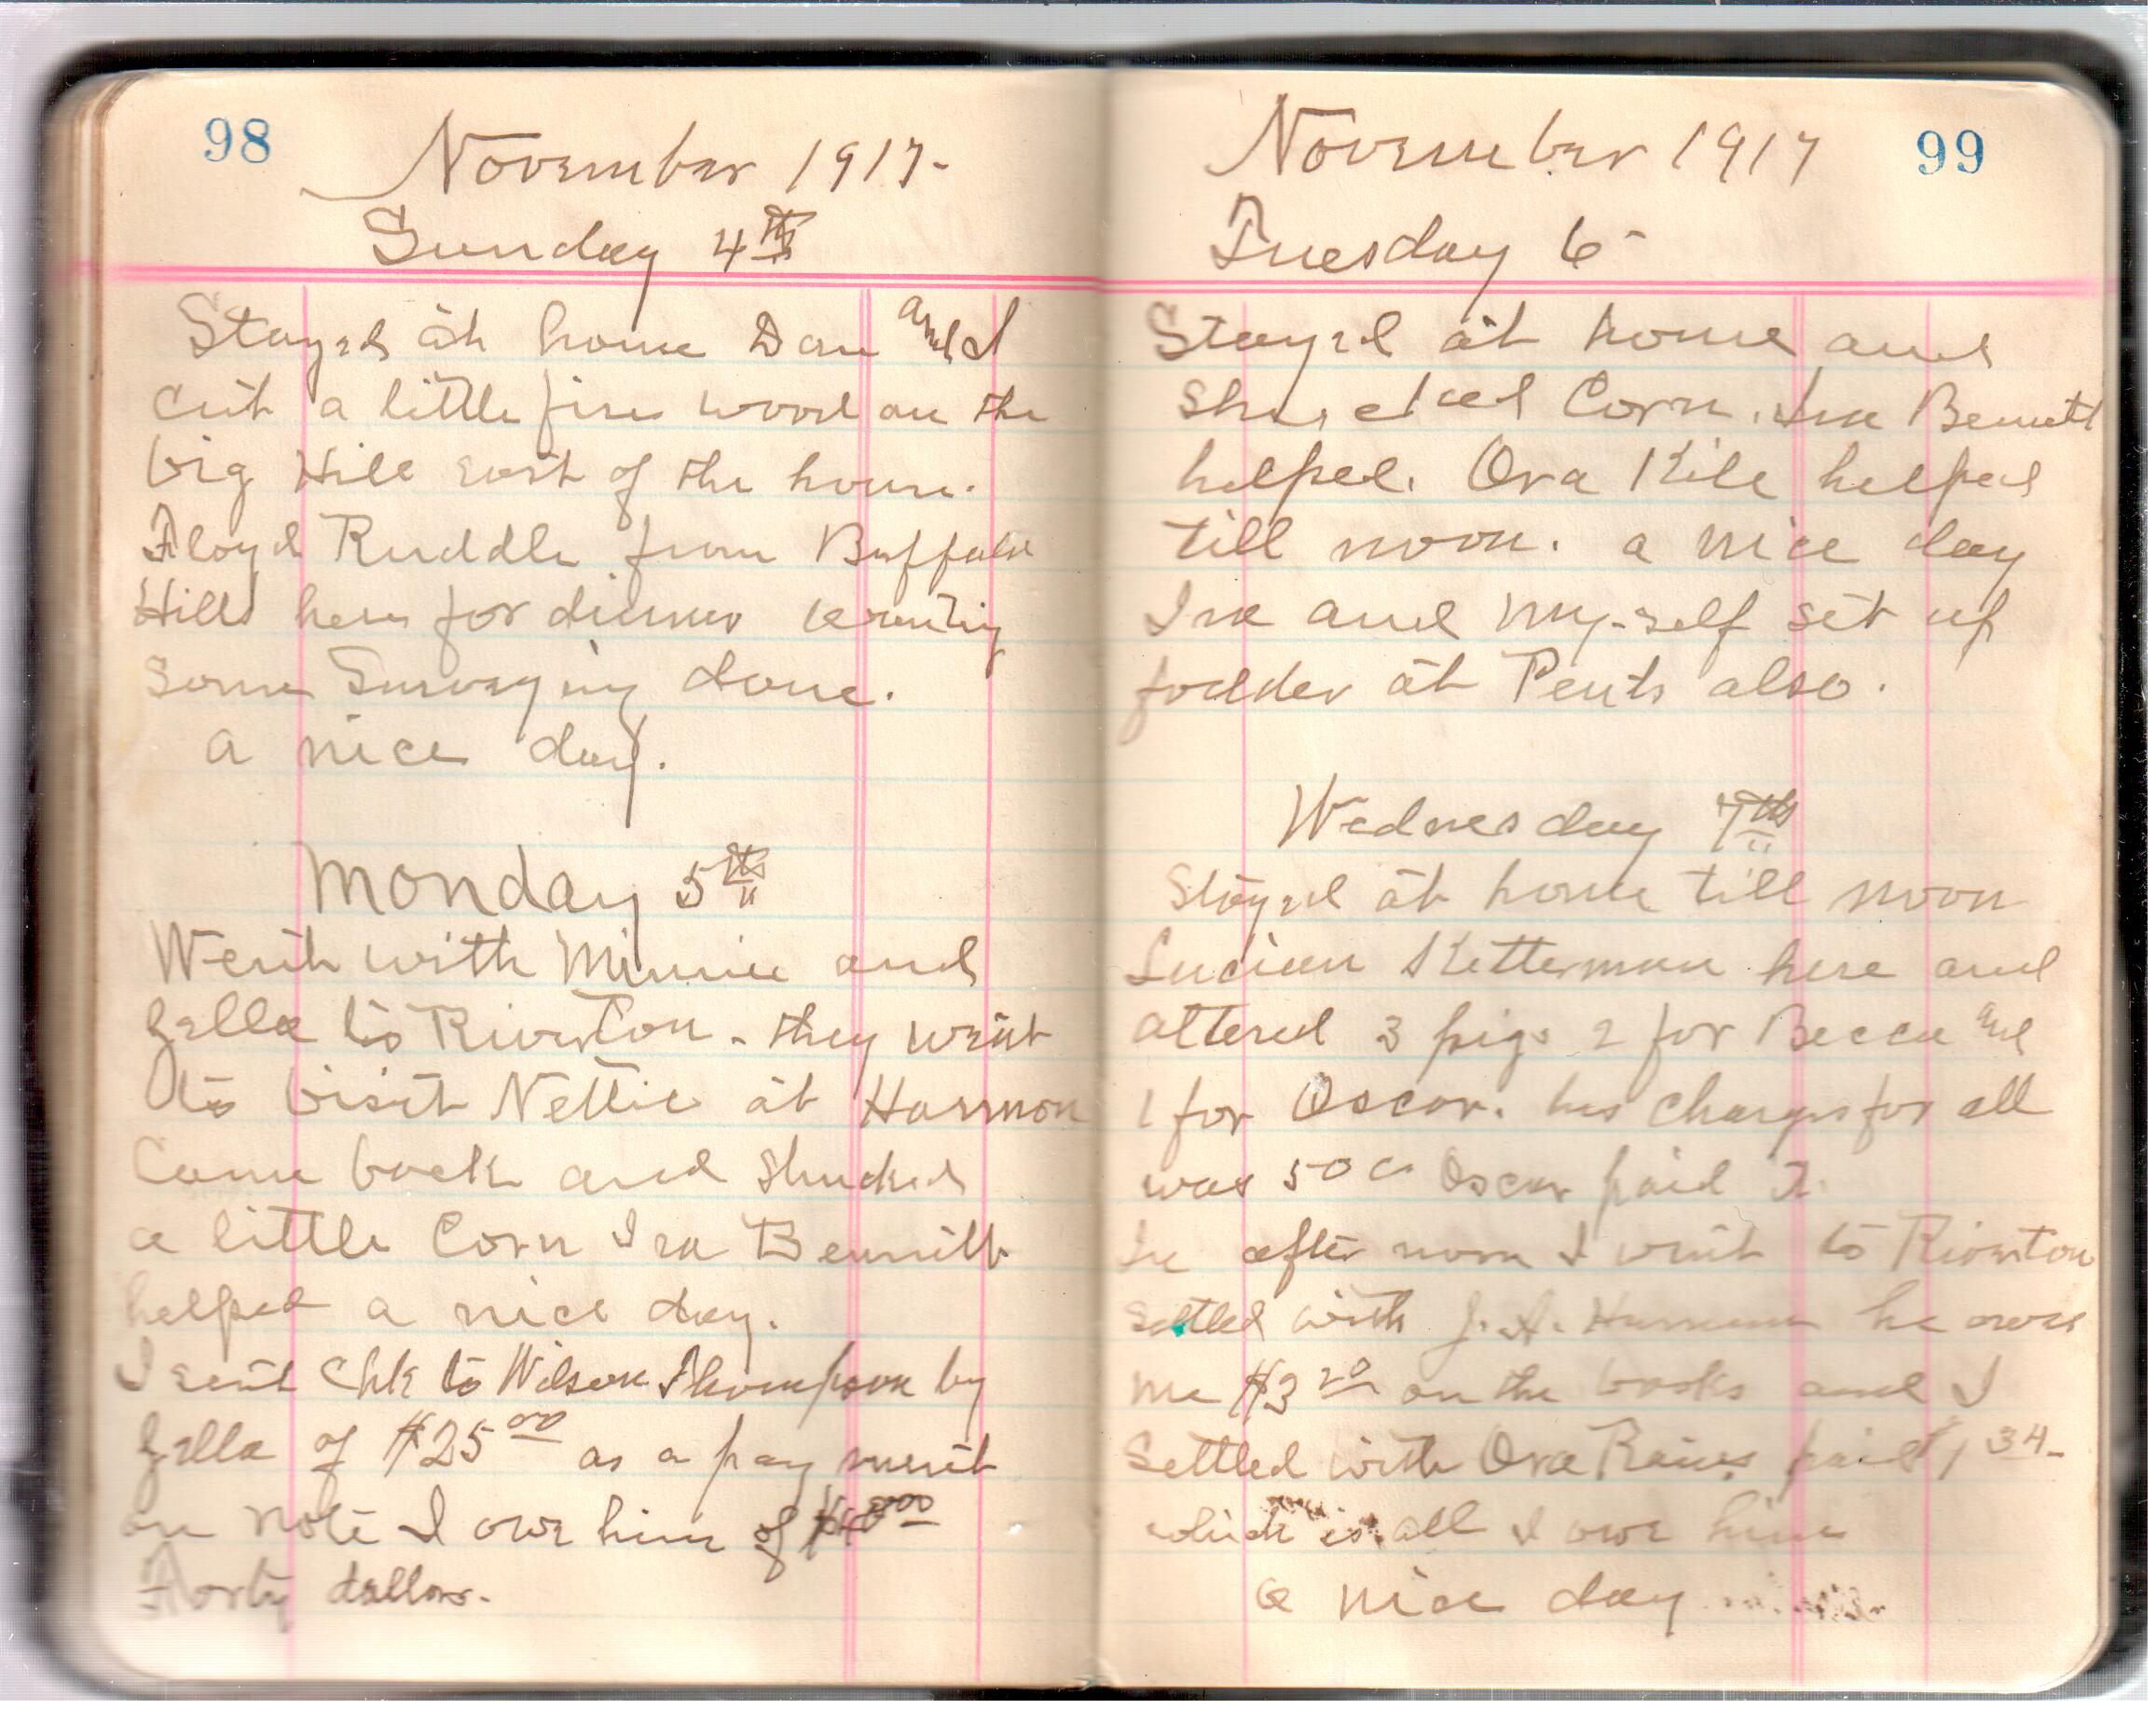 98
November 1917-
Sunday 4th
Stayed at home Dan and I
cut a little fire wood on the
big Hill east of the house.
Floyd Ruddle from Buffalo
Hills here for dinner wanting
some Surveying done.
a nice day.
Monday 5th
Went with Minnie and
Zella to Riverton - they went
to visit Nettie at Harmon
Came back and Shucked
a little Corn Ira Bennett
helped a nice day.
I sent Chk to Wilson Thompson by
Zella of $25 00 as a pay ment
on note I owe him of $40 00
Forty dollars.
99
November 1917
Tuesday 6-
Stayed at home and
Shucked Corn. Ira Bennett
helped. Ora Kile helped
till noon. a nice day
Ira and My-self set up
fodder at Pents also.
Wednesday 7th
Stayed at home till noon
Lucian Ketterman here and
altered 3 pigs 2 for Becca and
1 for Oscar. his charges for all
was 50 c Oscar paid it.
In after noon I went to Riverton
Settled with J. A. Harman he owes
me $3 20 on the books and I
Settled with Ora Raines paid 1 34-
which is all I owe him
a nice day